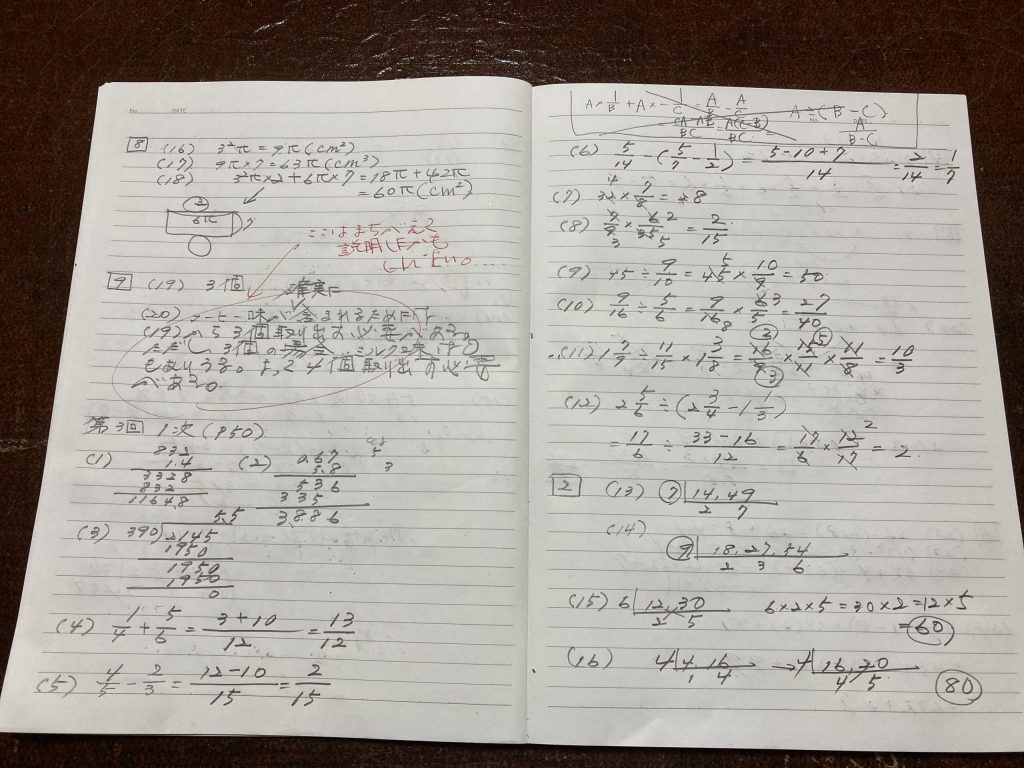 No.
DATE
8 (16) 3²π = 9π(cm²)
(17) 9π×7=63π(cm³)
(18) 3²π×2+6π×7=18π+42π
=60π(cm²)
6π
7
ここはまちがえて
説明したかも
しれない。
9 (19) 3個
確実に
(20) コーヒー味が含まれるためには
(19)から3個取り出す必要がある。
ただし3個の場合
もありうる。よって4個取り出す必要
がある。
第3回 1次(P50)
(1) 832
1.4
3328
832
1164.8
(2) 0.67
5.8
536
335
3.886
(3) 390 2145 5.5
1950
1950
1950
0
(4) 1/4 + 5/6 = (3+10)/12 = 13/12
(5) 4/5 - 2/3 = (12-10)/15 = 2/15
A×1/B + A×-1/C = A/B - A/C
A÷(B-C)
A/(B-C)
(6) 5/14 - (5/7 - 1/2) = (5-10+7)/14 = 2/14 = 1/7
(7) 32×7/8 = 28
(8) = 2/15
(9) 45÷9/10 = 45×10/9 = 50
(10) 9/16 ÷ 5/6 = 9/16 × 6/5 = 27/40
(11) 1 7/9 ÷ 11/15 × 1 3/8 = 16/9 × 15/11 × 11/8 = 10/3
(12) 2 5/6 ÷ (2 3/4 - 1 1/3)
= 17/6 ÷ (33-16)/12 = 17/6 × 12/17 = 2
2 (13) 7 14,49
2 7
(14)
9 18,27,54
2 3 6
(15) 6 12,30
2 5
6×2×5=30×2=12×5
=60
(16) 4 4,16 → 4 16,20
1 4 4 5
80